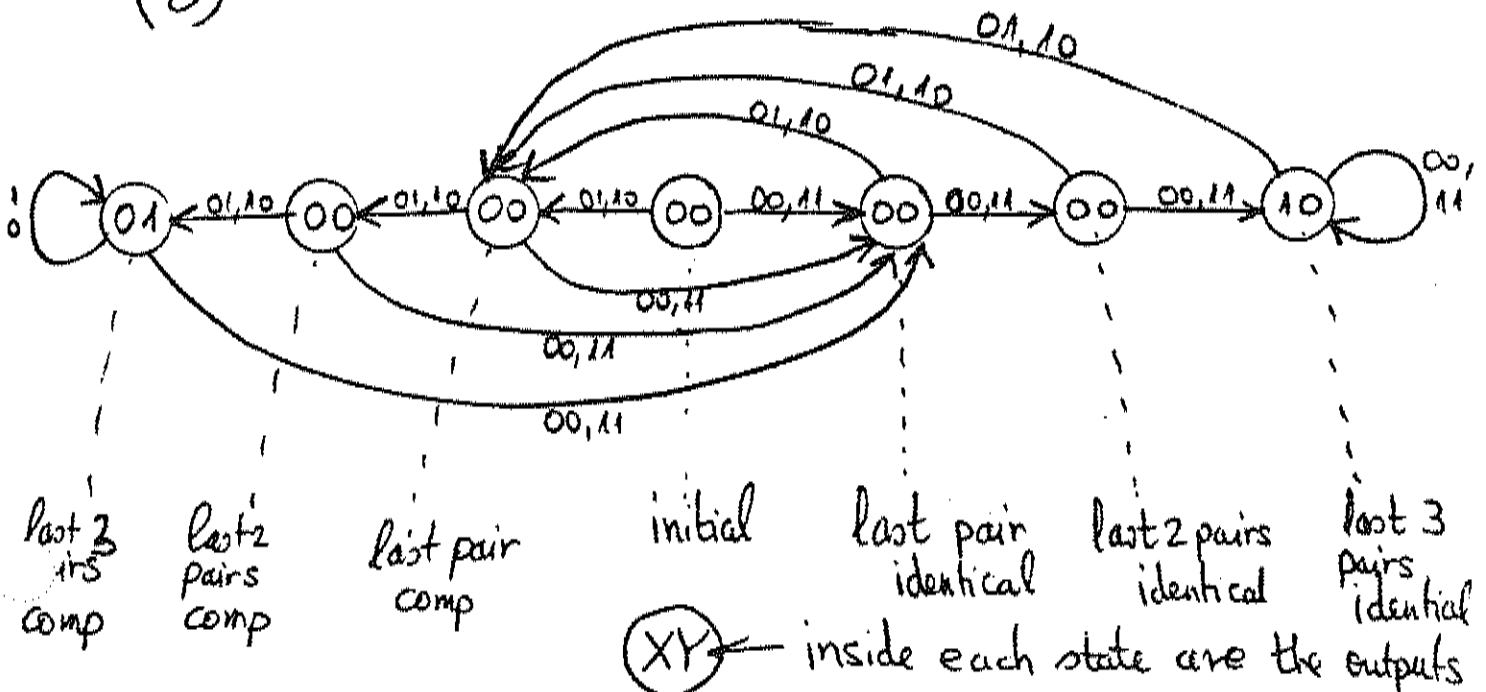 (6)
01,10
01,10
01,10
01 01,10 00 01,10 00 01,10 00 00,11 00 00,11 00 00,11 10 00,
11
00,11
00,11
00,11
last 3
comp
last 2
pairs
comp
last pair
comp
initial
last pair
identical
last 2 pairs
identical
last 3
pairs
idential
XY inside each state are the outputs